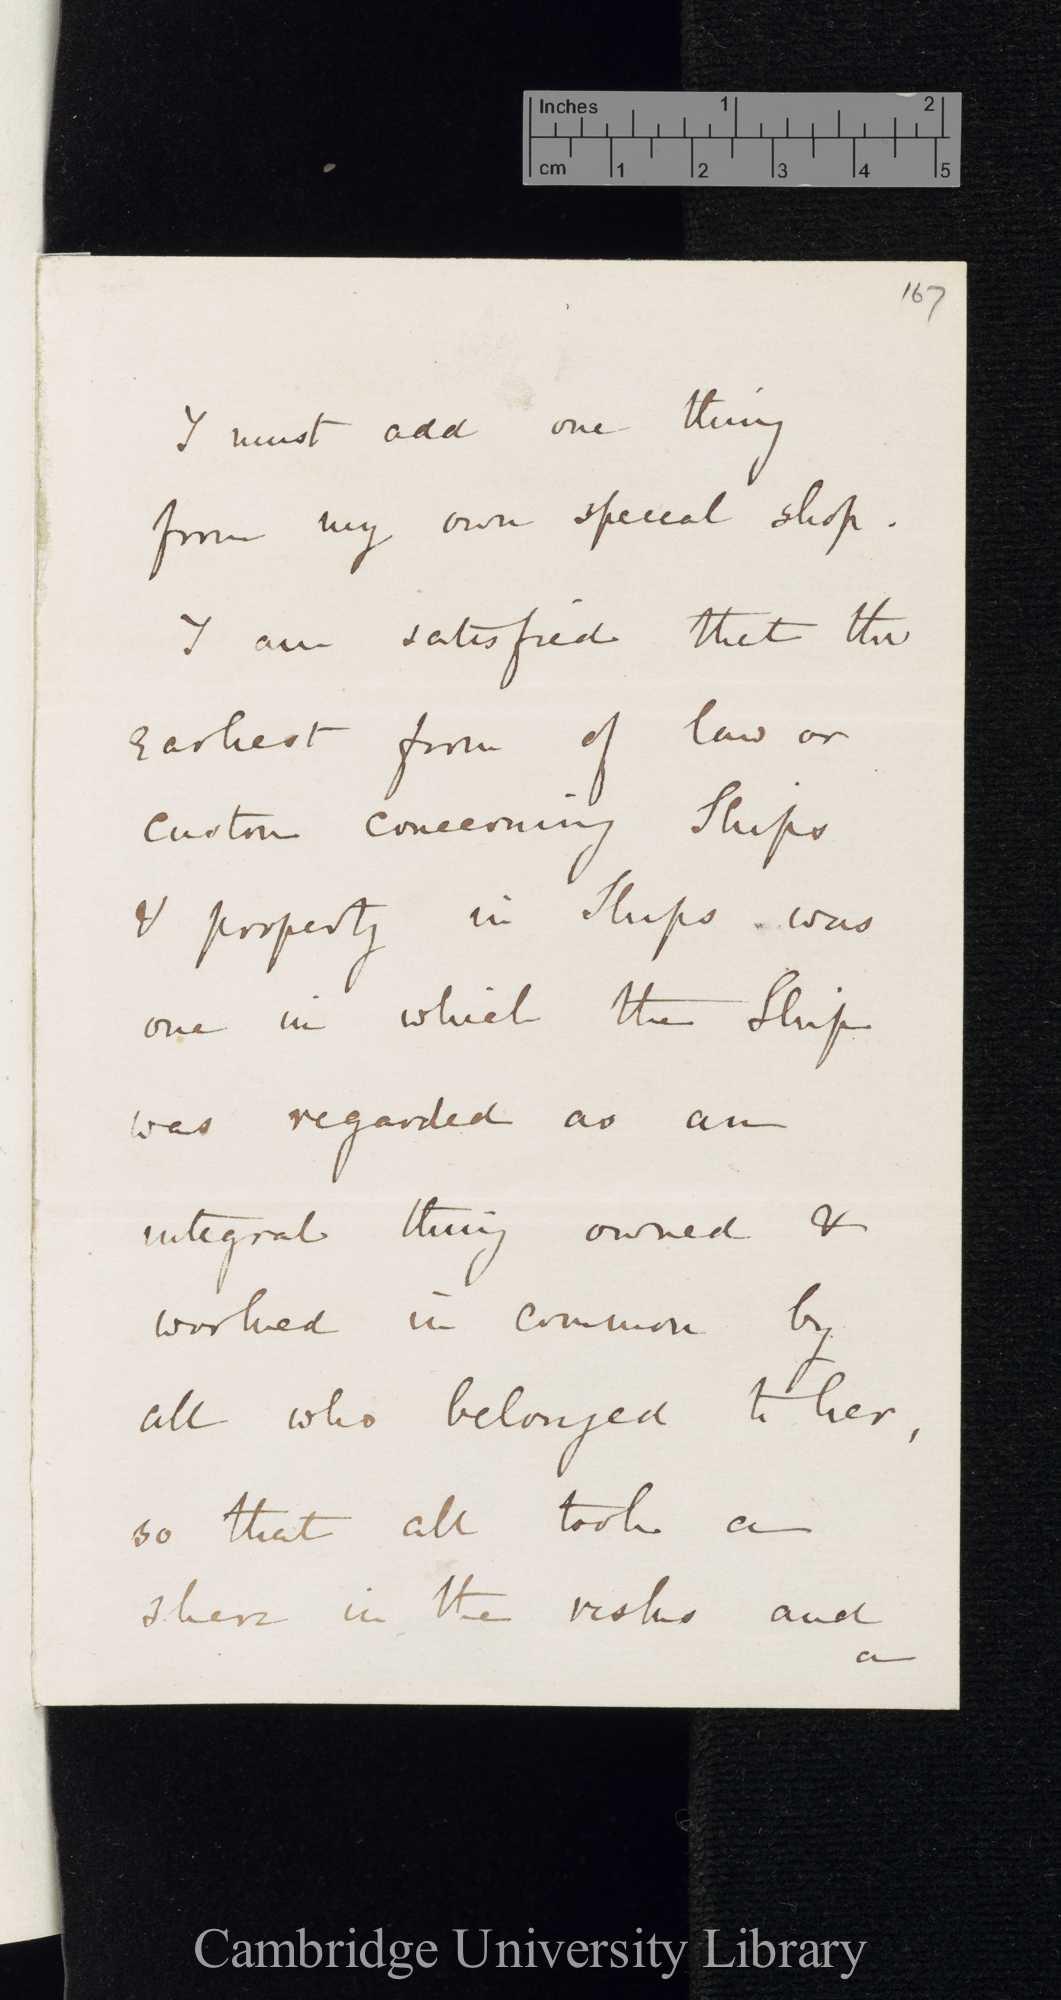 Inches 1 2
cm 1 2 3 4 5
167
I must add one thing
from my own special shop.
I am satisfied that the
earliest form of law or
custom concerning Ships
& property in Ships was
one in which the Ship
was regarded as an
integral thing owned &
worked in common by
all who belonged to her,
so that all took a
share in the risks and
a
Cambridge University Library